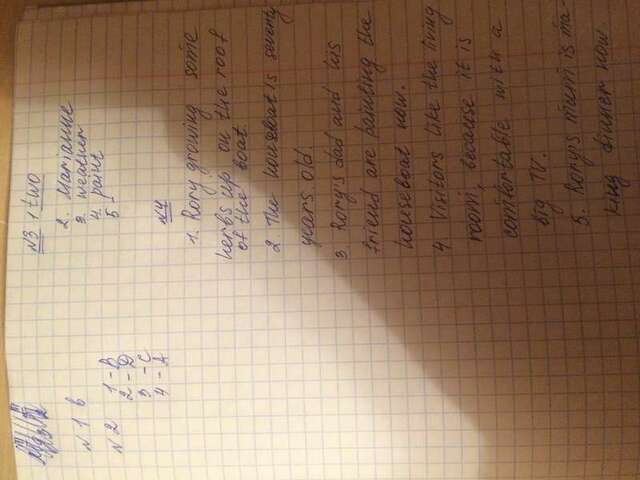 № 1 b
№ 2 1 - B
2 - D
3 - C
4 - A
№3 1 two
2. Marianne
3. weather
4. paint
5 -
№4
1. Rory growing some
herbs up on the roof
of the boat.
2. The houseboat is seventy
years old.
3 Rory's dad and his
friend are painting the
houseboat now.
4. Visitors like the living
room, because it is
comfortable with a
big TV.
5. Rory's mum is ma-
king dinner now